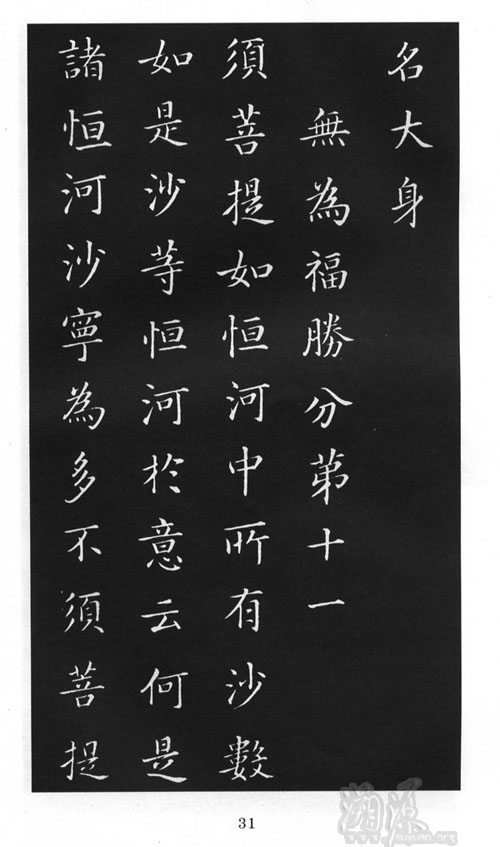 名大身
無為福勝分第十一
須菩提如恒河中所有沙數
如是沙等恒河於意云何是
諸恒河沙寧為多不須菩提
31